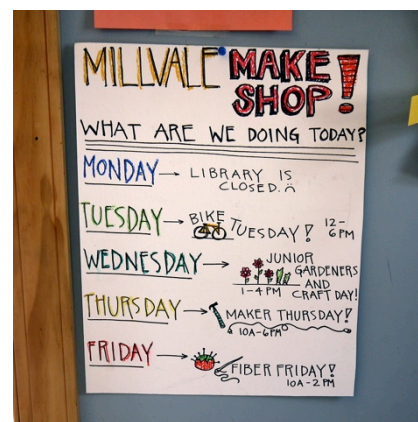 MILLVALE MAKE
SHOP!
WHAT ARE WE DOING TODAY?
MONDAY → LIBRARY IS
CLOSED. ☹
TUESDAY → BIKE TUESDAY! 12-
6PM
WEDNESDAY → JUNIOR
GARDENERS
AND
1-4 PM CRAFT DAY!
THURSDAY → MAKER THURSDAY!
10A-6PM
FRIDAY → FIBER FRIDAY!
10A-2PM